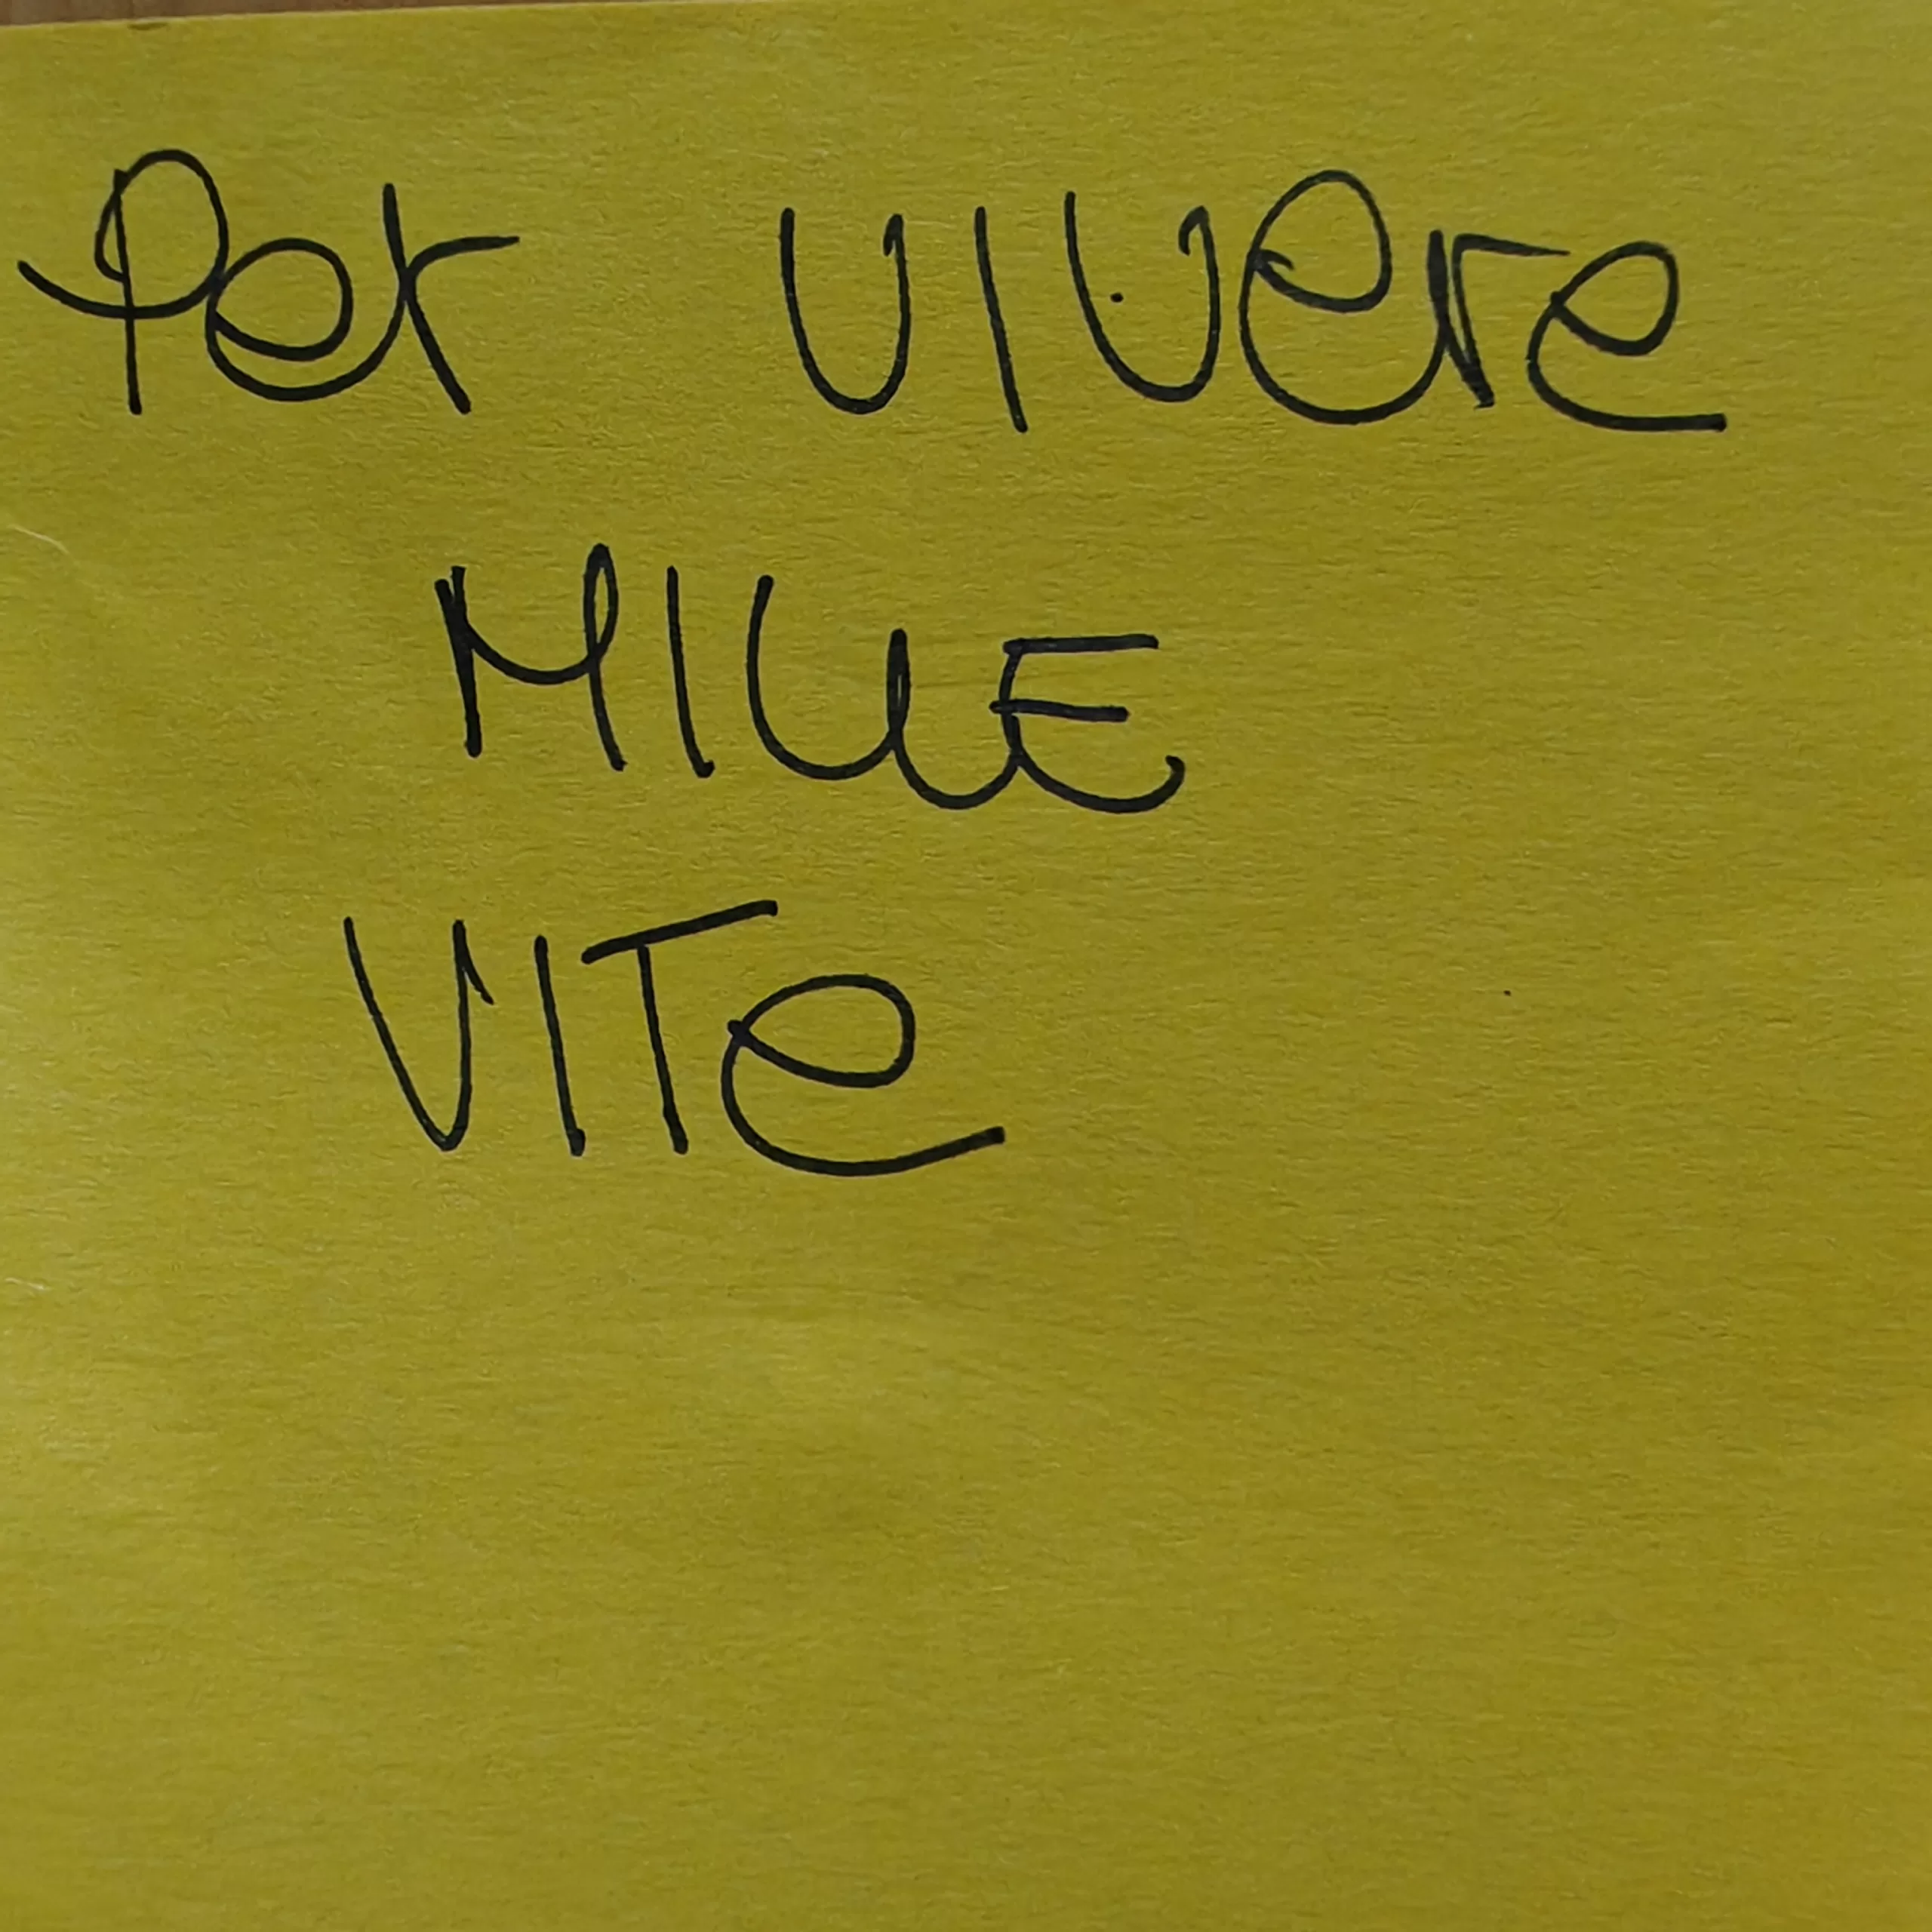 Per vivere
MILLE
VITe